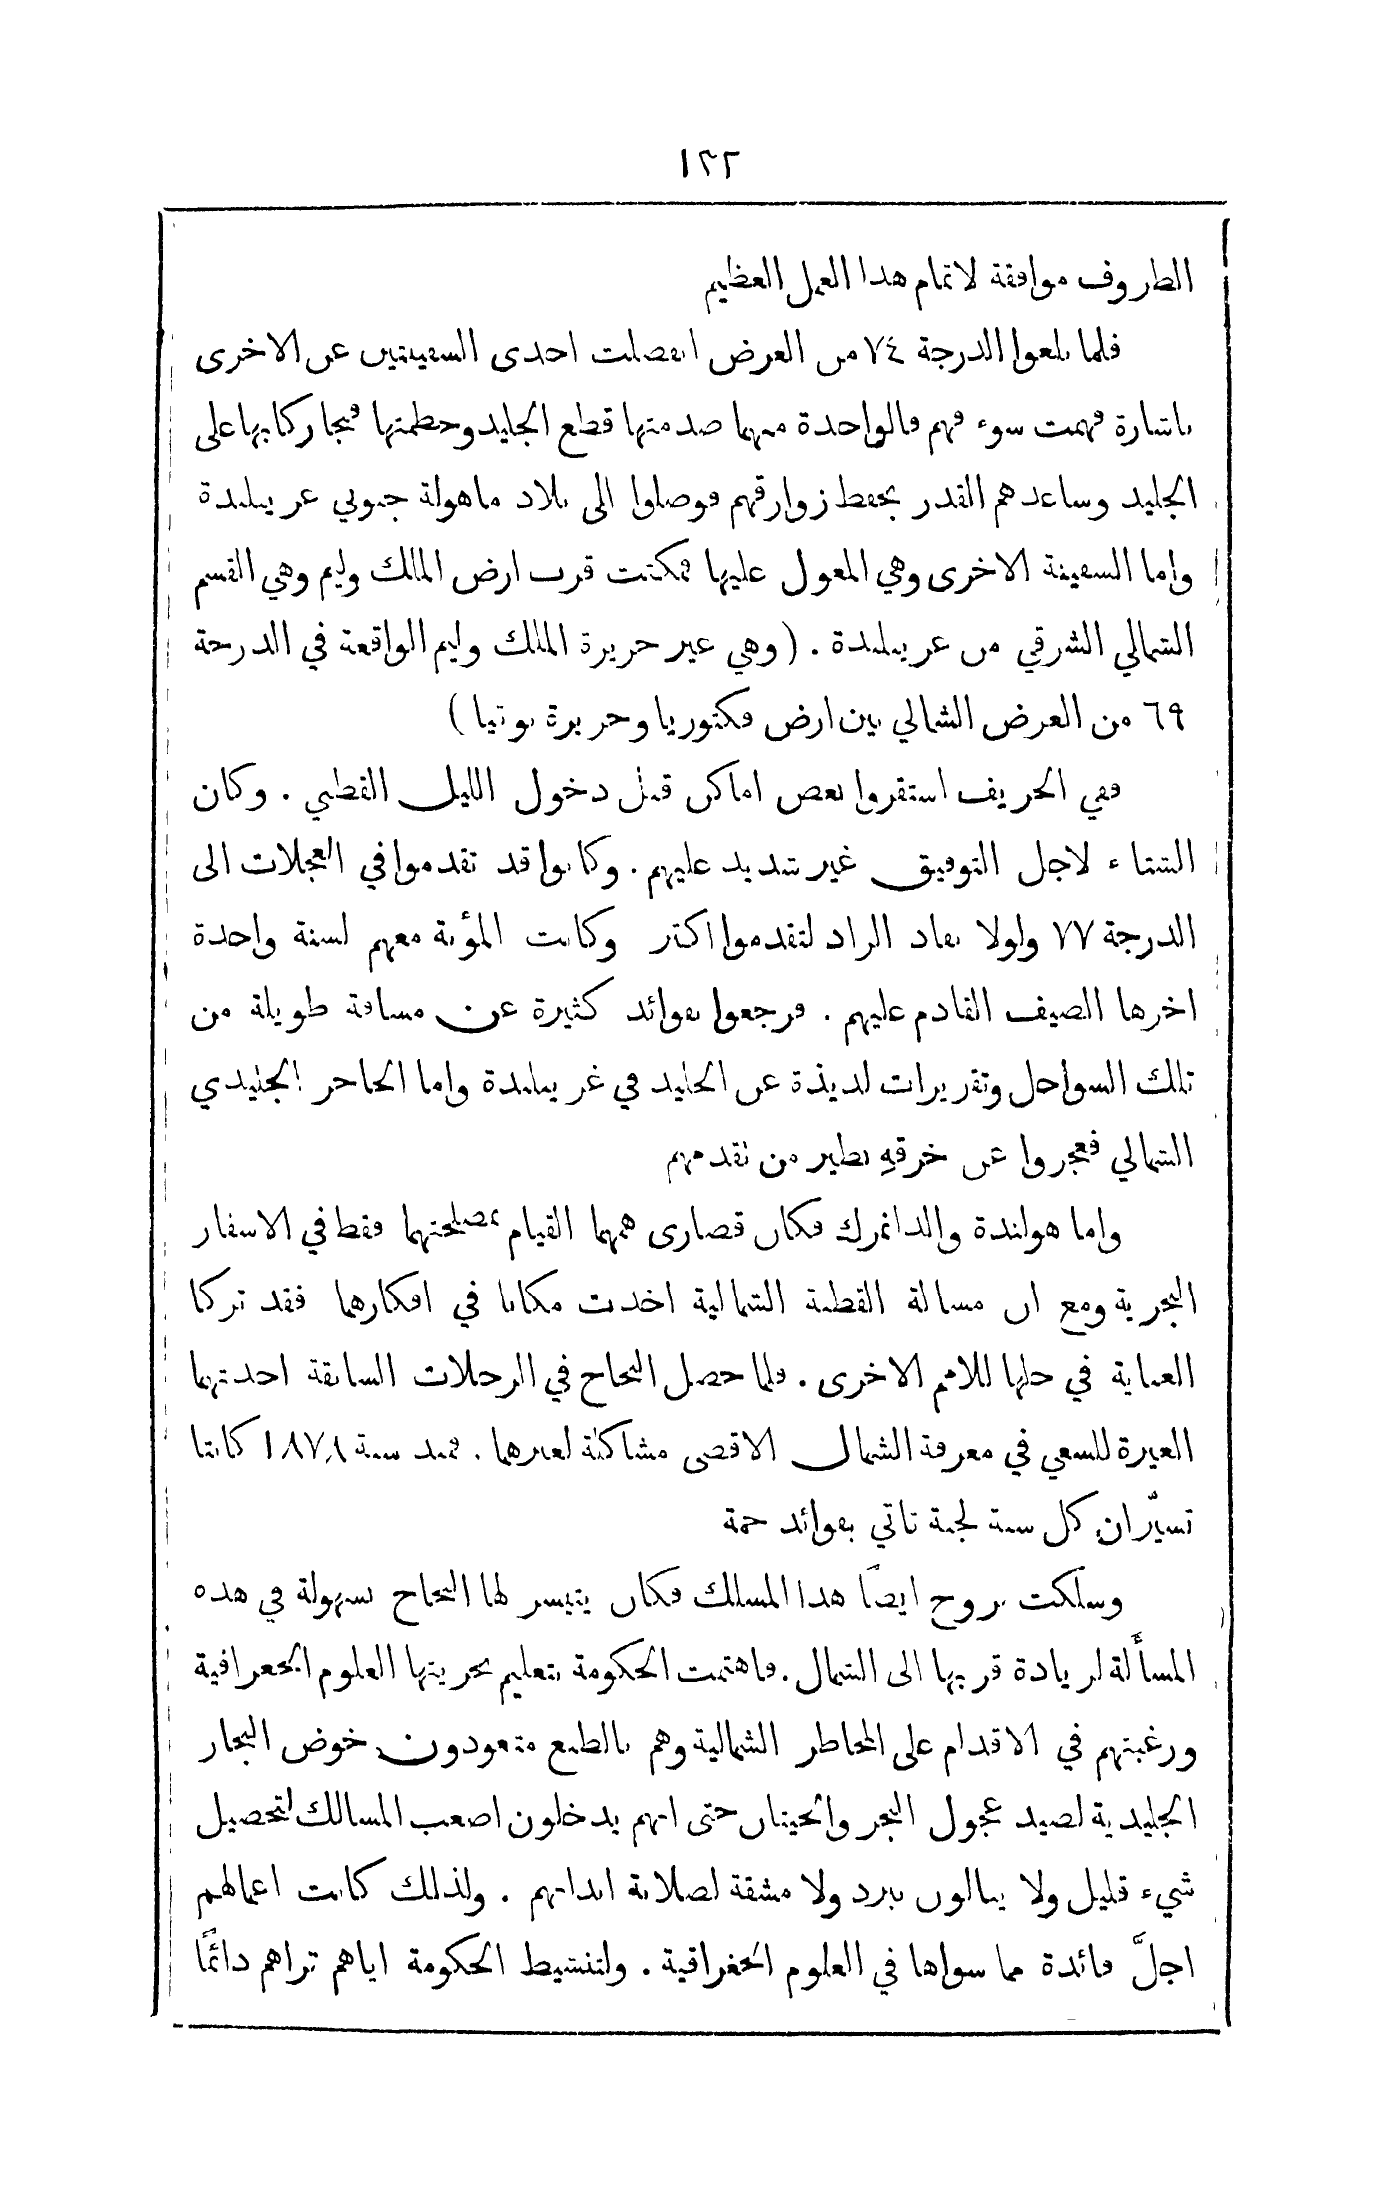 ١٣٢
الظروف موافقة لاتمام هذا العمل العظيم
فلما بلغوا الدرجة ٧٤ من العرض انفصلت احدى السفينتين عن الاخرى
باشارة فهمت سوء فهم فالواحدة منهما صدمتها قطع الجليد وحطمتها فنجا ركابها على
الجليد وساعدهم القدر بحفظ زوارقهم فوصلوا الى بلاد ماهولة جنوبي غرينلندة
واما السفينة الاخرى وهي المعول عليها فمكثت قرب ارض الملك وليم وهي القسم
الشمالي الشرقي من غرينلندة . (وهي غير جزيرة الملك وليم الواقعة في الدرجة
٦٩ من العرض الشمالي بين ارض فكتوريا وجزيرة بوتيا)
ففي الخريف استقروا بعض اماكن قبل دخول الليل القطبي . وكان
الشتاء لاجل التوفيق غير شديد عليهم . وكانوا قد تقدموا في العجلات الى
الدرجة ٧٧ ولولا نفاد الزاد لتقدموا اكثر وكانت المؤنة معهم لسنة واحدة
اخرها الصيف القادم عليهم . فرجعوا بفوائد كثيرة عن مسافة طويلة من
تلك السواحل وتقريرات لذيذة عن الجليد في غرينلندة واما الحاجز الجليدي
الشمالي فعجزوا عن خرقهِ نظير من تقدمهم
واما هولندة والدانمرك فكان قصارى همهما القيام بمصلحتهما فقط في الاسفار
البحرية ومع ان مسالة القطبة الشمالية اخذت مكانا في افكارهما فقد تركا
العناية في حلها للامم الاخرى . فلما حصل النجاح في الرحلات السابقة اخذتهما
الغيرة للسعي في معرفة الشمال الاقصى مشاكلة لغيرهما . فمنذ سنة ١٨٧٨ كانتا
تسيّران كل سنة لجنة تاتي بفوائد جمة
وسلكت نروج ايضًا هذا المسلك فكان يتيسر لها النجاح بسهولة في هذه
المسأَلة لزيادة قربها الى الشمال . فاهتمت الحكومة بتعليم بحريتها العلوم الجغرافية
ورغبتهم في الاقدام على المخاطر الشمالية وهم بالطبع متعودون خوض البحار
الجليدية لصيد عجول البحر والحيتان حتى انهم يدخلون اصعب المسالك لتحصيل
شيء قليل ولا يبالون ببرد ولا مشقة لصلابة ابدانهم . ولذلك كانت اعمالهم
اجلَّ فائدة مما سواها في العلوم الجغرافية . ولتنشيط الحكومة اياهم تراهم دائمًا